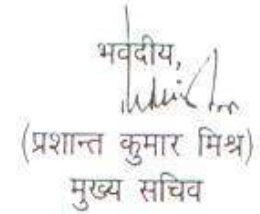 भवदीय,
(प्रशान्त कुमार मिश्र)
मुख्य सचिव